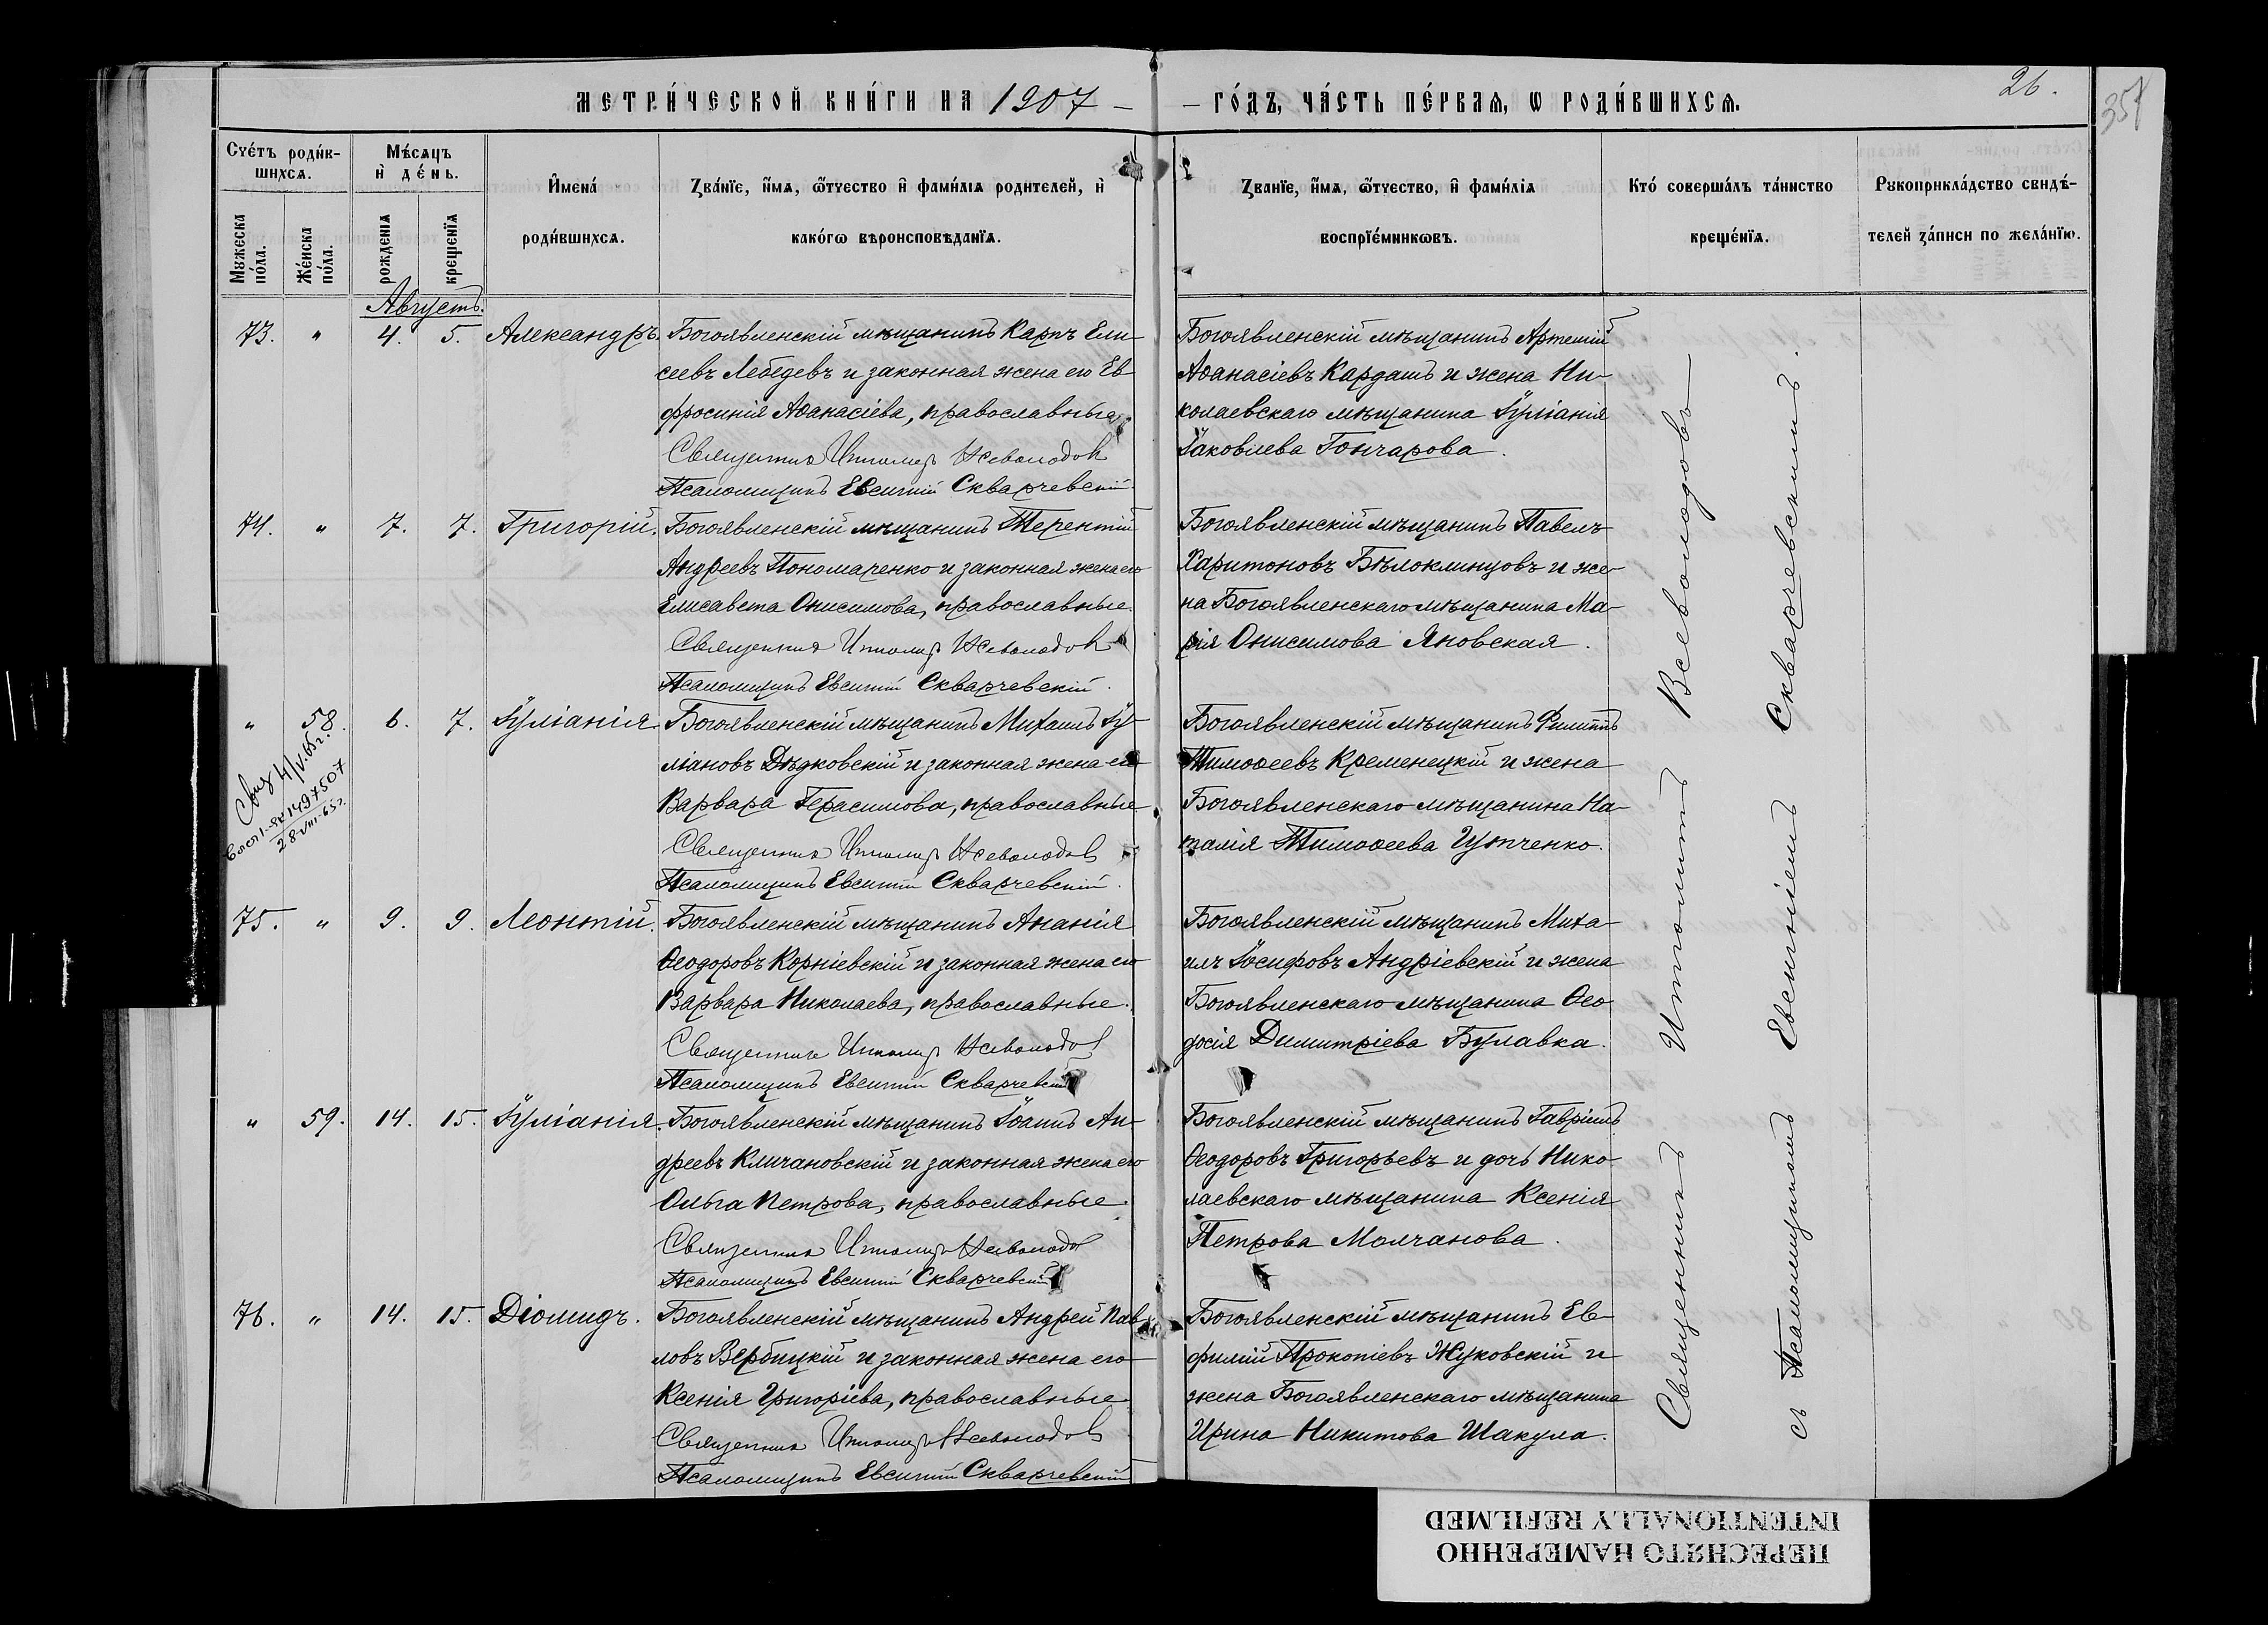 МЕТРИ́ЧЕСКОЙ КНИ́ГИ НА 1907 —
— ГО́ДЪ, ЧА́СТЬ ПЕ́РВАѦ, Ѡ РОДИ́ВШИХСѦ.
26.
Сче́тъ роди́в-
шихсѧ.
Мꙋжеска
по́ла.
Же́нска
по́ла.
Мѣ́сѧцъ
и҆ де́нь.
рожденїѧ
крещенїѧ
И҆мена́
роди́вшихсѧ.
Ꙁва́нїе, и҆́мѧ, ѻ҆́тчество и҆ фами́лїѧ родителей, и҆
како́гѡ вѣроисповѣданїѧ.
Ꙁванїе, и҆́мѧ, ѻ҆́тчество, и҆ фами́лїѧ
воспрїе́мникѡвъ.
Кто́ соверша́лъ та́инство
креще́нїѧ.
Рꙋкоприкла́дство свидѣ́-
телей ꙁа́писи по жела́нїю.
Августъ.
73. " 4. 5. Александръ.
Богоявленскій мѣщанинъ Карпъ Ели-
сеевъ Лебедевъ и законная жена его Ев-
фросинія Аѳанасіева, православные.
Священникъ Ипполитъ Всеволодовъ
Псаломщикъ Евсигній Скварчевскій.
Богоявленскій мѣщанинъ Артемій
Аѳанасіевъ Кардашъ и жена Ни-
колаевскаго мѣщанина Іуліанія
Іаковлева Гончарова.
74. " 7. 7. Григорій.
Богоявленскій мѣщанинъ Терентій
Андреевъ Пономаренко и законная жена его
Елисавета Онисимова, православные.
Священникъ Ипполитъ Всеволодовъ
Псаломщикъ Евсигній Скварчевскій.
Богоявленскій мѣщанинъ Павелъ
Харитоновъ Бѣлоклинцовъ и же-
на Богоявленскаго мѣщанина Ма-
рія Онисимова Яновская.
" 58. 6. 7. Іуліанія.
4/V.65г.
1497507
28-VIII-65г.
Богоявленскій мѣщанинъ Михаилъ Іу-
ліановъ Дѣдковскій и законная жена его
Варвара Герасимова, православные.
Священникъ Ипполитъ Всеволодовъ
Псаломщикъ Евсигній Скварчевскій.
Богоявленскій мѣщанинъ Филиппъ
Тимоѳеевъ Кременецкій и жена
Богоявленскаго мѣщанина На-
талія Тимоѳеева
75. " 9. 9. Леонтій.
Богоявленскій мѣщанинъ Ананія
Ѳеодоровъ Корніевскій и законная жена его
Варвара Николаева, православные.
Священникъ Ипполитъ Всеволодовъ
Псаломщикъ Евсигній Скварчевскій
Богоявленскій мѣщанинъ Миха-
илъ Іосифовъ Андріевскій и жена
Богоявленскаго мѣщанина Ѳео-
досія Димитріева Булавка.
" 59. 14. 15. Іуліанія.
Богоявленскій мѣщанинъ Іоаннъ Ан-
дреевъ Кличановскій и законная жена его
Ольга Петрова, православные.
Священникъ Ипполитъ Всеволодовъ
Псаломщикъ Евсигній Скварчевскій
Богоявленскій мѣщанинъ Гавріилъ
Ѳеодоровъ Григорьевъ и дочь Нико-
лаевскаго мѣщанина Ксенія
Петрова Молчанова.
76. " 14. 15. Діомидъ.
Богоявленскій мѣщанинъ Андрей Пав-
ловъ Вербицкій и законная жена его
Ксенія Григоріева, православные.
Священникъ Ипполитъ Всеволодовъ
Псаломщикъ Евсигній Скварчевскій
Богоявленскій мѣщанинъ Ев-
фимій Прокопіевъ Жуковскій и
жена Богоявленскаго мѣщанина
Ирина Никитова Шакула.
Священникъ Ипполитъ Всеволодовъ
съ Псаломщикомъ Евсигніемъ Скварчевскимъ.
ПЕРЕСНЯТО НАМЕРЕННО
INTENTIONALLY REFILMED